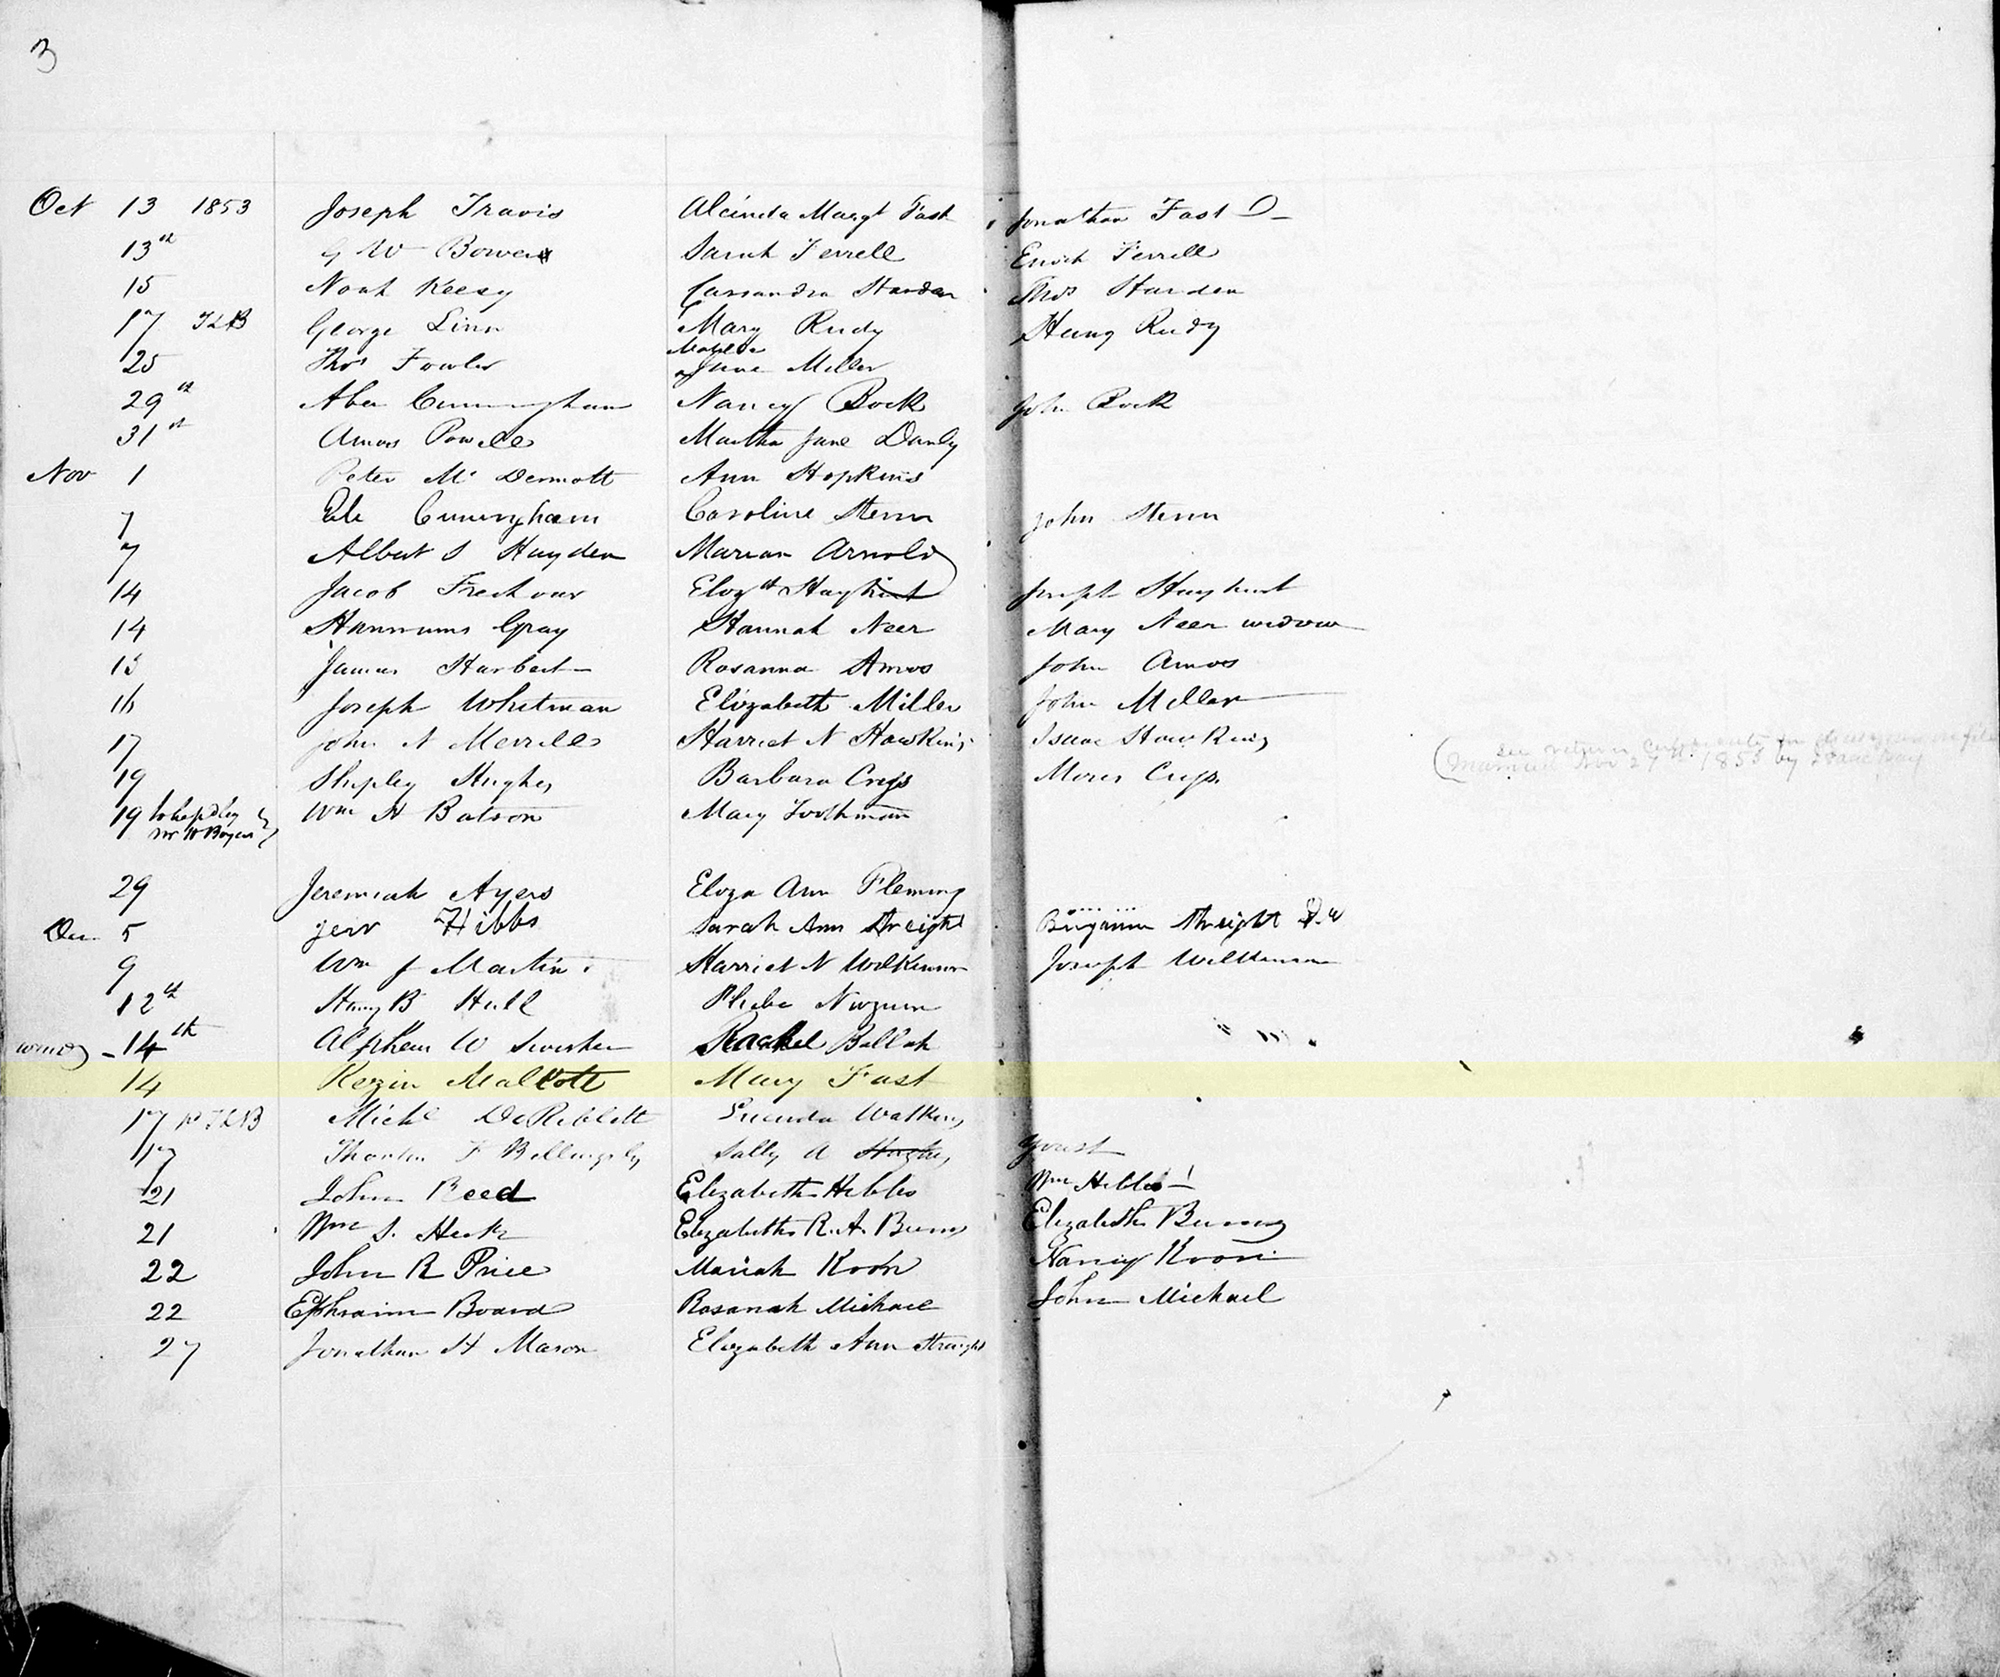 3
Oct 13 1853 Joseph Travis Alcinda Margt Fast Jonathan Fast D
13th G W Bowers Sarah Ferrell Enoch Ferrell
15 Noah Keesy Cassandra Harden Thos Harden
17 TLB George Linn Mary Rudy Henry Rudy
Matilda
25 Thos Fowler Jane Miller
29th Cunningham Nancy Bock John Bock
31st Amos Powell Martha Jane Danly
Nov 1 Peter Mc Dermott Ann Hopkins
7 Cuningham Caroline Sturm John Sturm
7 Albert S Hayden Marian Arnold
14 Jacob Freshour Elizth Hayhurst Joseph Hayhurst
14 Gray Hannah Neer Mary Neer widow
15 James Harbert Rosanna Amos John Amos
16 Joseph Whitman Elizabeth Miller John Miller
17 John N Merrill Harriet N Hawkins Isaac Hawkins
married Nov 27th 1853 by Isaac
19 Shepley Hughes Barbara
19 Wm H Batson Mary Toothman
29 Jeremiah Ayers Eliza Ann Fleming
Dec 5 Hibbs Sarah Ann Streight Benjamin Streight
9 Wm J Martin Harriet N Wilkinson Joseph Wilkinson
12th Henry B Hull Phebe Nuzum
14th Alpheus W Swisher Rachel Ballah
14 Rezin Malcott Mary Fast
17 TLB Michl Lucinda Watkins
17 F Billingsly Sally A Hughes Yourst
21 John Reed Elizabeth Hibbs Wm Hibbs
21 Wm S. Elizabeth R. A. Elizabeth
22 John R Price Mariah Koon Nancy Koon
22 Ephraim Board Rosanah Michael John Michael
27 Jonathan H Mason Elizabeth Ann Straight